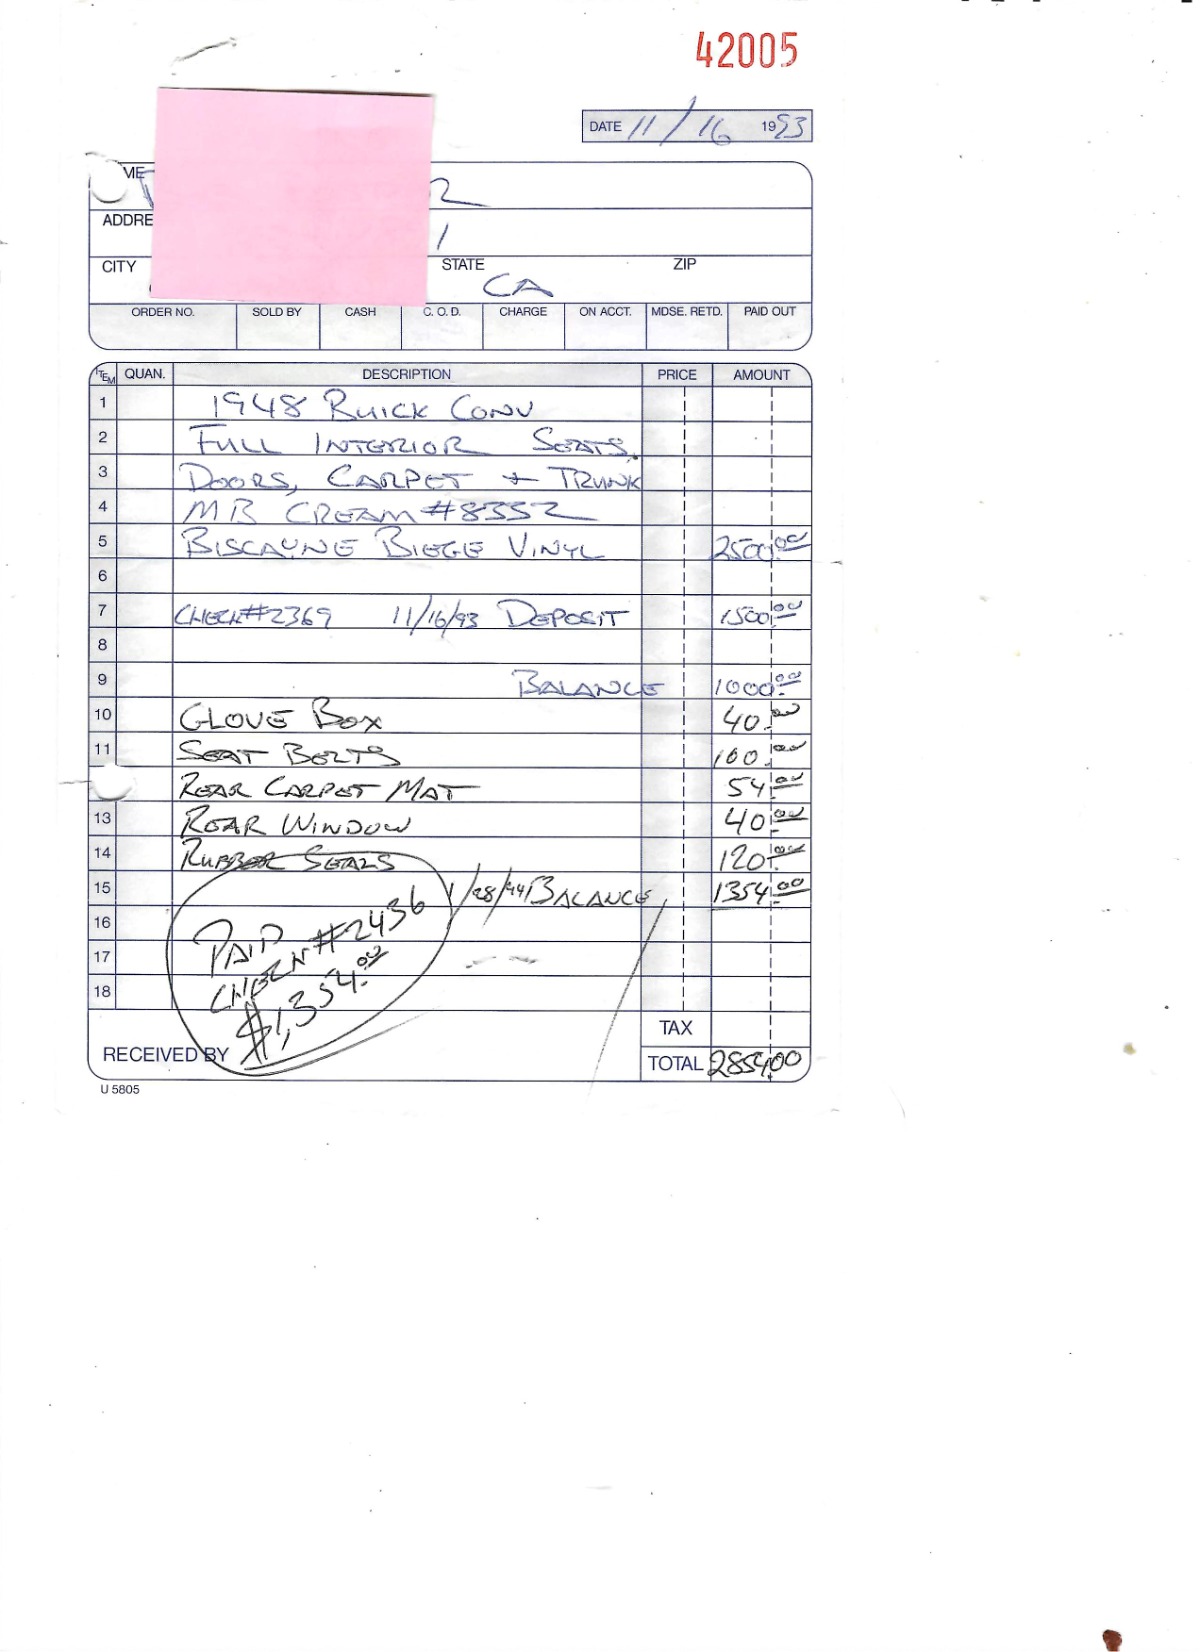 42005
DATE 11/16 1993
ME
ADDRE
CITY STATE CA ZIP
ORDER NO. SOLD BY CASH C. O. D. CHARGE ON ACCT. MDSE. RETD. PAID OUT
ITEM QUAN. DESCRIPTION PRICE AMOUNT
1 1948 BUICK CONV
2 FULL INTERIOR SEATS,
3 DOORS, CARPET + TRUNK
4 MB CREAM #8352
5 BISCAYNE BIEGE VINYL 2500.00
6
7 CHECK#2369 11/16/93 DEPOSIT 1500.00
8
9 BALANCE 1000.00
10 GLOVE BOX 40.00
11 SEAT BELTS 100.00
REAR CARPET MAT 54.00
13 REAR WINDOW 40.00
14 RUBBER SEALS 120.00
15 1/28/94 BALANCE 1354.00
16
17
18
PAID
CHECK #2436
$1,354.00
TAX
RECEIVED BY TOTAL 2854.00
U 5805